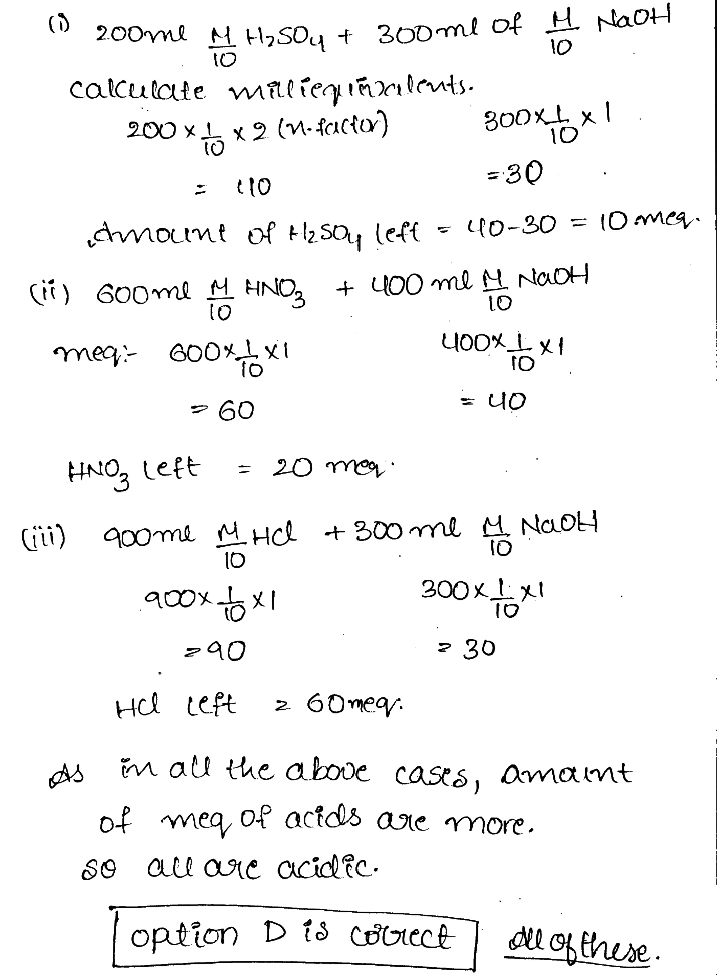 (i) 200ml M/10 H₂SO₄ + 300ml of M/10 NaOH
calculate milliequivalents.
200 × 1/10 × 2 (n-factor) 300×1/10×1
= 40 =30
Amount of H₂SO₄ left = 40-30 = 10 meq.
(ii) 600ml M/10 HNO₃ + 400 ml M/10 NaOH
meq:- 600×1/10×1 400×1/10×1
= 60 = 40
HNO₃ left = 20 meq.
(iii) 900ml M/10 HCl + 300 ml M/10 NaOH
900×1/10×1 300×1/10×1
=90 = 30
HCl left = 60meq.
As in all the above cases, amount
of meq of acids are more.
so all are acidic.
option D is correct All of these.